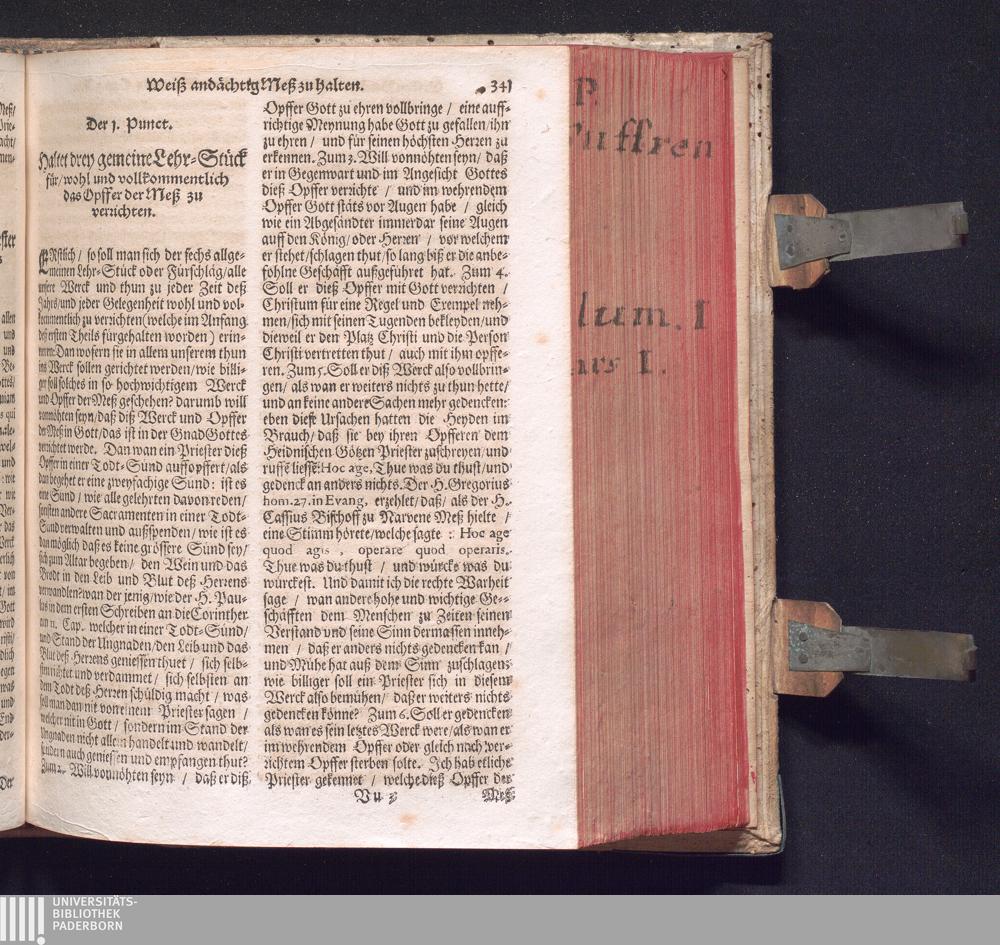 Weiß andächtig Meß zu halten.
341
Der 1. Punct.
Haltet drey gemeine Lehr-Stück
für/wohl und vollkommentlich
das Opffer der Meß zu
verrichten.
ERstlich / so soll man sich der sechs allge-
meinen Lehr-Stück oder Fürschläg/alle
unsere Werck und thun zu jeder Zeit deß
Jahrs/und jeder Gelegenheit wohl und vol-
kommentlich zu verrichten (welche im Anfang
deß ersten Theils fürgehalten worden) erin-
neren: Dan wofern sie in allem unserem thun
ins Werck sollen gerichtet werden/wie billi-
ger soll solches in so hochwichtigem Werck
und Opffer der Meß geschehen? darumb will
vonnöhten seyn/daß diß Werck und Opffer
der Meß in Gott/das ist in der Gnad Gottes
verrichtet werde. Dan wan ein Priester dieß
Opffer in einer Todt-Sünd auffopffert/als
dan begehet er eine zweyfachige Sünd: ist es
eine Sünd / wie alle gelehrten davon reden/
sonsten andere Sacramenten in einer Todt-
Sünd verwalten und außspenden/wie ist es
dan möglich daß es keine grössere Sünd sey/
sich zum Altar begeben / den Wein und das
Brodt in den Leib und Blut deß Herrens
verwandlen? wan der jenig/wie der H. Pau-
lus in dem ersten Schreiben an die Corinther
am 11. Cap. welcher in einer Todt-Sünd/
und Stand der Ungnaden/den Leib und das
Blut deß Herrens geniessen thuet / sich selb-
sten richtet und verdammet / sich selbsten an
dem Todt deß Herren schuldig macht / was
soll man dan mit vorreinem Priester sagen /
welcher nit in Gott / sondern im Stand der
Ungnaden nicht allein handelt und wandelt/
sondern auch geniessen und empfangen thut?
Zum 2. Will vonnöhten seyn / daß er diß
Opffer Gott zu ehren vollbringe / eine auff-
richtige Meynung habe Gott zu gefallen/ihn
zu ehren / und für seinen höchsten Herren zu
erkennen. Zum 3. Will vonnöhten seyn/ daß
er in Gegenwart und im Angesicht Gottes
dieß Opffer verrichte / und im wehrendem
Opffer Gott stäts vor Augen habe / gleich
wie ein Abgesandter immerdar seine Augen
auff den König/oder Herren / vor welchem
er stehet/schlagen thut/so lang biß er die anbe-
fohlne Geschäfft außgeführet hat. Zum 4.
Soll er dieß Opffer mit Gott verrichten /
Christum für eine Regel und Exempel neh-
men/sich mit seinen Tugenden bekleyden/und
dieweil er den Platz Christi und die Person
Christi vertretten thut / auch mit ihm opffe-
ren. Zum 5. Soll er diß Werck also vollbrin-
gen/ als wan er weiters nichts zu thun hette/
und an keine andere Sachen mehr gedencken:
eben diese Ursachen hatten die Heyden im
Brauch/ daß sie bey ihren Opfferen dem
Heidnischen Götzen Priester zuschreyen/und
ruffē liessē: Hoc age, Thue was du thust/und
gedenck an anders nichts. Der H. Gregorius
hom. 27. in Evang. erzehlet/daß/ als der H.
Cassius Bischoff zu Narvene Meß hielte /
eine Stimm hörete/welche sagte : Hoc age
quod agis , operare quod operaris.
Thue was du thust / und würcke was du
würckest. Und damit ich die rechte Warheit
sage / wan andere hohe und wichtige Ge-
schäfften dem Menschen zu Zeiten seinen
Verstand und seine Sinn dermassen inneh-
men / daß er anders nichts gedencken kan /
und Mühe hat auß dem Sinn zuschlagen:
wie billiger soll ein Priester sich in diesem
Werck also bemühen/ daß er weiters nichts
gedencken könne? Zum 6. Soll er gedencken
als wan es sein letztes Werck were/als wan er
im wehrendem Opffer oder gleich nach ver-
richtem Opffer sterben solte. Ich hab etliche
Priester gekennet / welche dieß Opffer der
Vu 3
Meß
P.
Suffren
lum. I
ars I.
UNIVERSITÄTS-
BIBLIOTHEK
PADERBORN